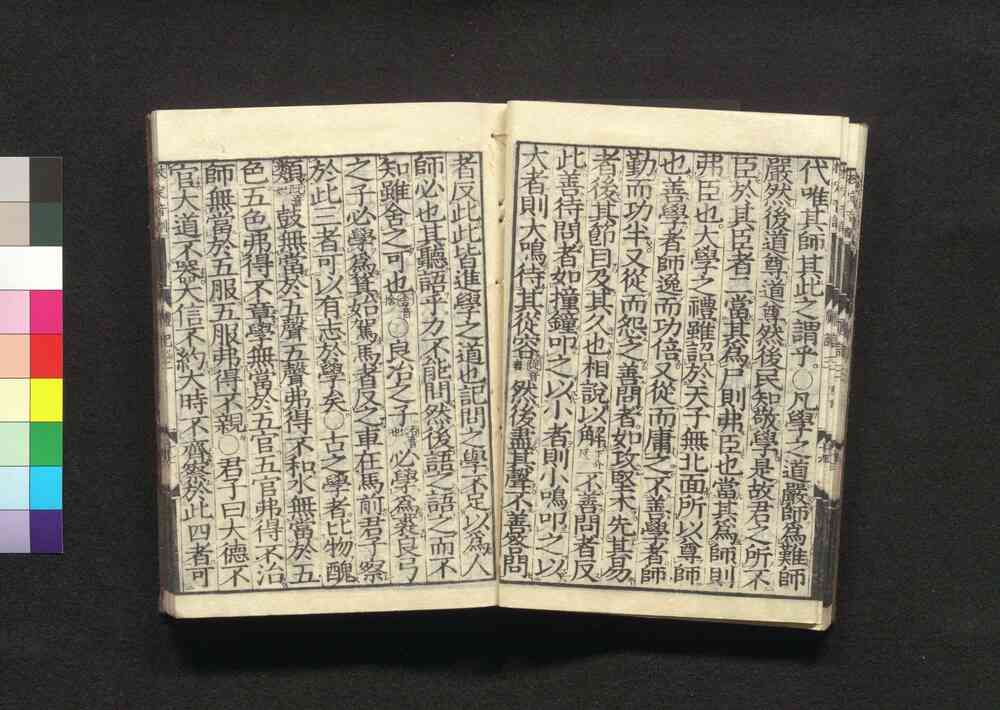 代唯其師其此之謂乎○凡學之道嚴師爲難師
嚴然後道尊道尊然後民知敬學是故君之所不
臣於其臣者二當其爲尸則弗臣也當其爲師則
弗臣也大學之禮雖詔於天子無北面所以尊師
也善學者師逸而功倍又從而庸之不善學者師
勤而功半又從而怨之善問者如攻堅木先其易
者後其節目及其久也相說以解不善問者反
此善待問者如撞鐘叩之以小者則小鳴叩之以
大者則大鳴待其從容然後盡其聲不善答問
者反此此皆進學之道也記問之學不足以爲人
師必也其聽語乎力不能問然後語之語之而不
知雖舍之可也○良冶之子必學爲裘良弓
之子必學爲箕始駕馬者反之車在馬前君子察
於此三者可以有志於學矣○古之學者比物醜
類鼓無當於五聲五聲弗得不和水無當於五
色五色弗得不章學無當於五官五官弗得不治
師無當於五服五服弗得不親○君子曰大德不
官大道不器大信不約大時不齊察於此四者可